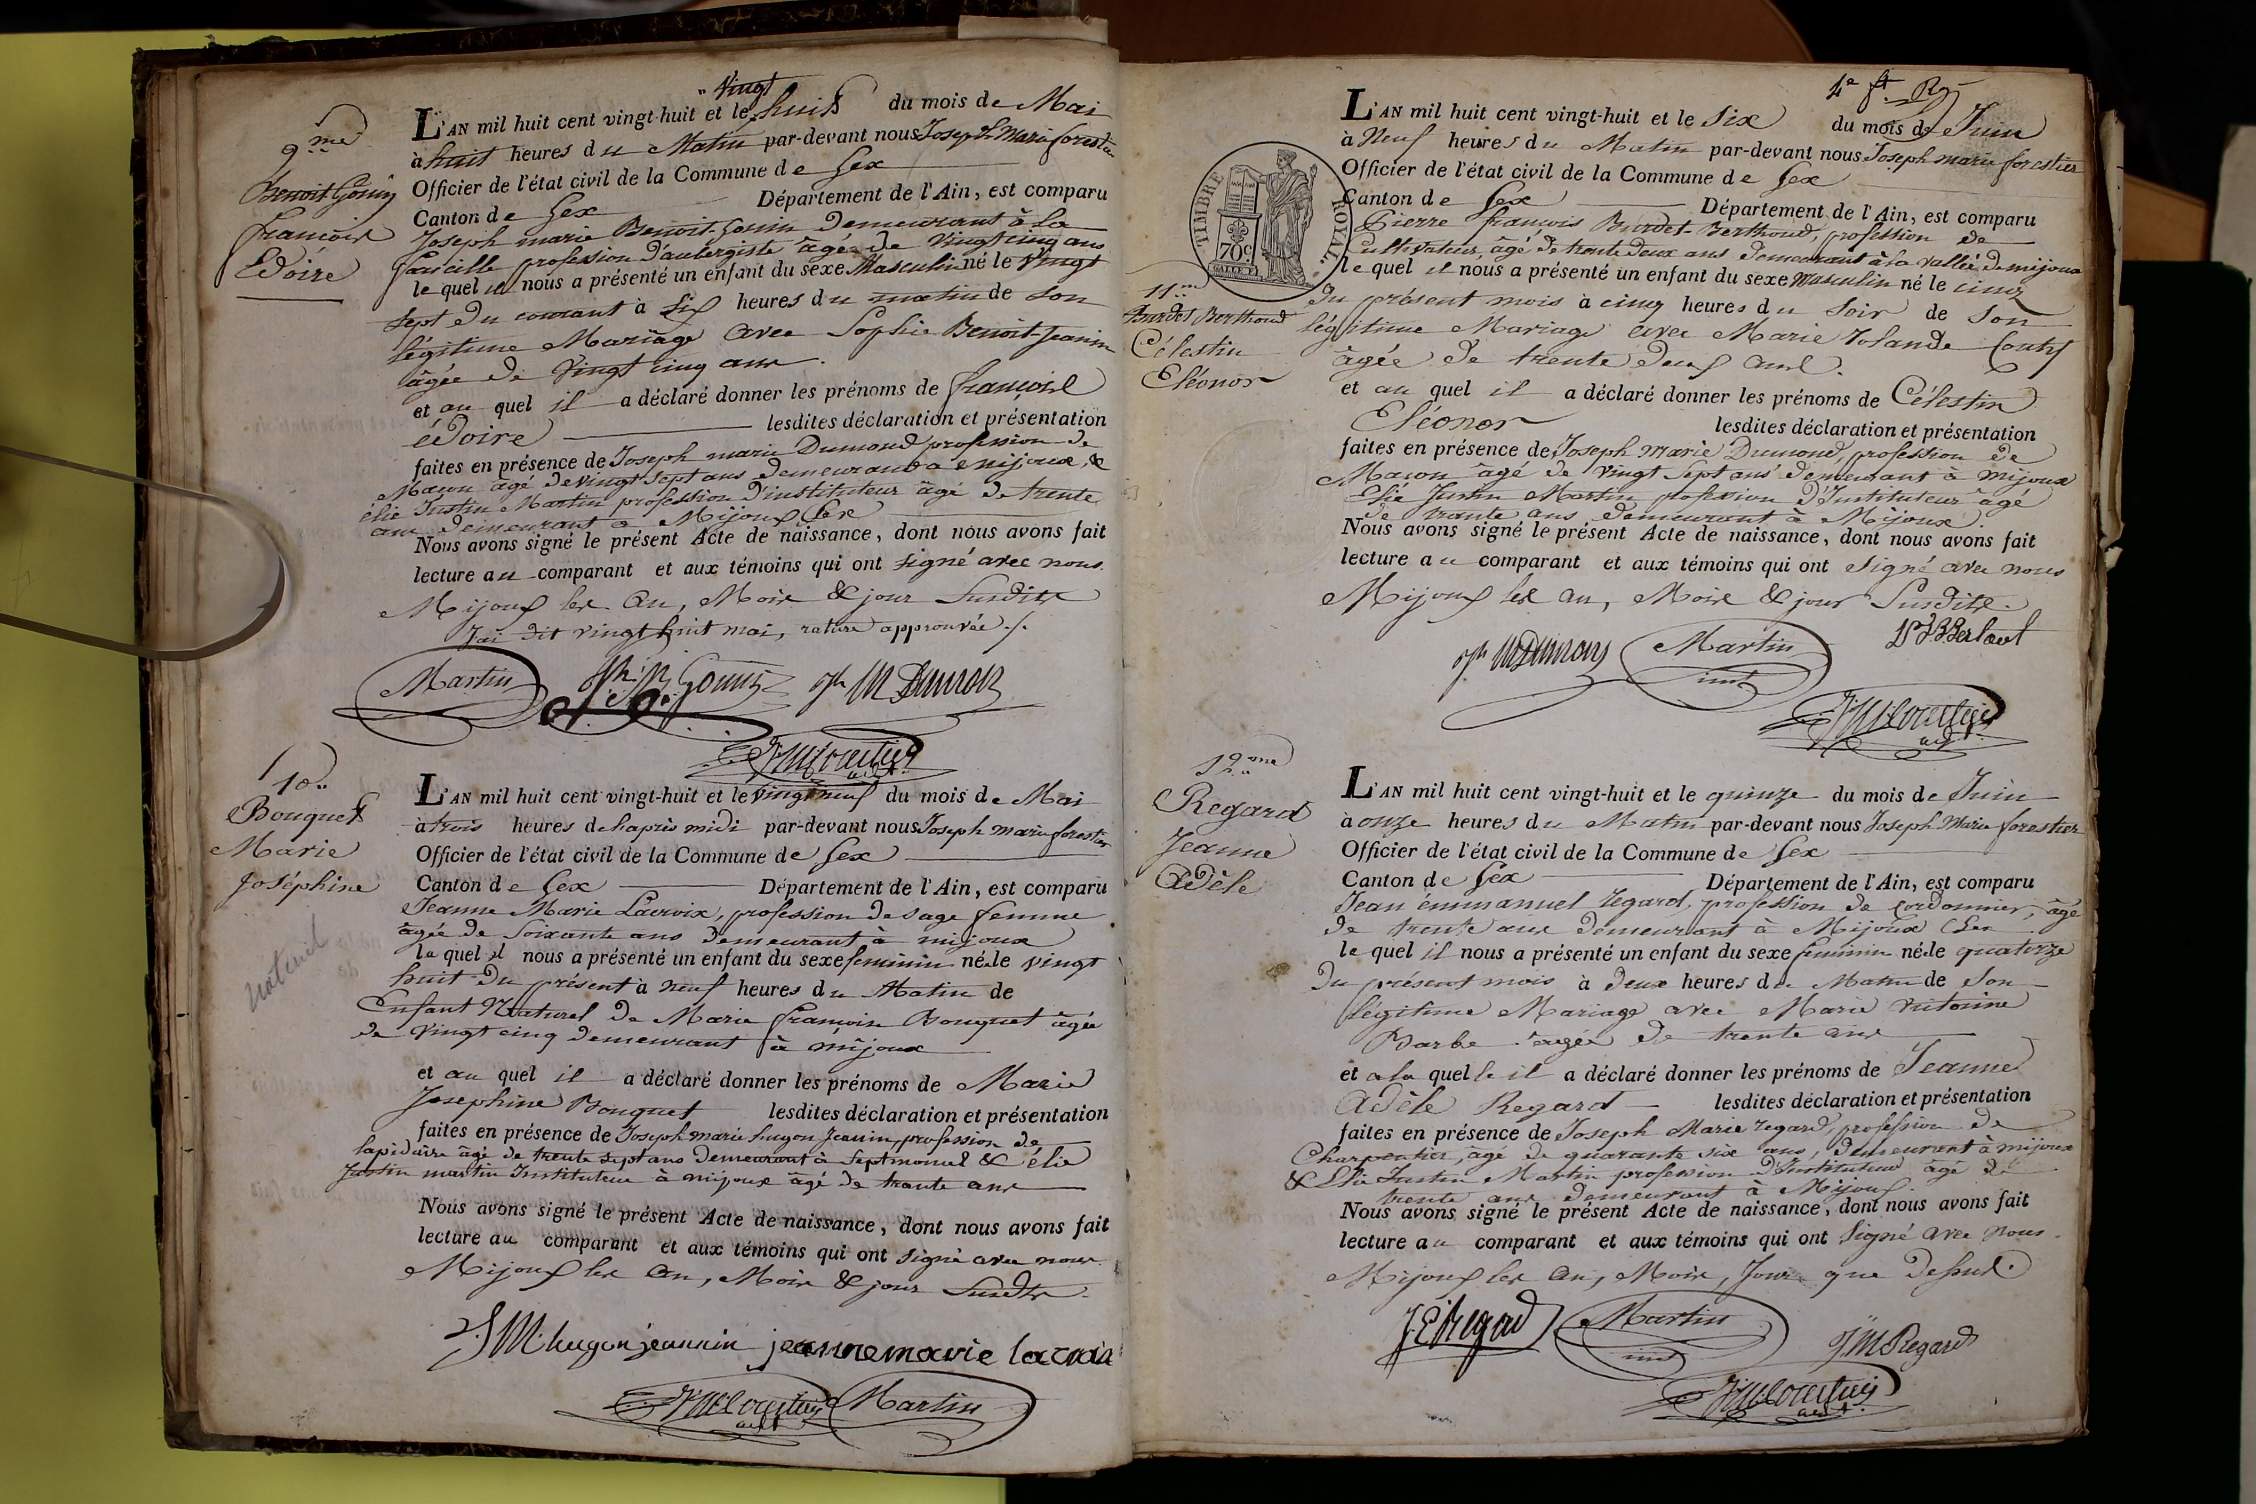 9.me
Benoit Gonin
François
Edoire
vingt
L'AN mil huit cent vingt-huit et le huit du mois de Mai
à huit heures du Matin par-devant nous Joseph Marie forestier
Officier de l'état civil de la Commune de Gex
Canton de Gex Département de l'Ain, est comparu
Joseph marie Benoit-Gonin demeurant à la
faucille profession d'aubergiste âgé de vingt cinq ans
le quel il nous a présenté un enfant du sexe Masculin né le vingt
sept du courant à six heures du matin de son
légitime Mariage avec Sophie Benoit-Jeanin
âgée de vingt cinq ans.
et au quel il a déclaré donner les prénoms de françois
édoire lesdites déclaration et présentation
faites en présence de Joseph marie Dumond profession de
Macon âgé de vingt sept ans demeurant à mijoux, &
élie Justin Martin profession d'instituteur âgé de trente
ans demeurant à Mijoux Gex
Nous avons signé le présent Acte de naissance, dont nous avons fait
lecture au comparant et aux témoins qui ont signé avec nous.
Mijoux les an, Mois & jour Susdits
J'ai dit vingt huit mai, rature approuvée ./.
Martin Gonin M Dumon
10.
Bouquet
Marie
Joséphine
naturel
L'AN mil huit cent vingt-huit et le vingt neuf du mois de Mai
à trois heures de l'après midi par-devant nous Joseph marie forestier
Officier de l'état civil de la Commune de Gex
Canton de Gex Département de l'Ain, est comparu
Jeanne Marie Lacroix, profession de sage femme
âgée de soixante ans demeurant à mijoux
la quel il nous a présenté un enfant du sexe feminin né le vingt
huit du présent à neuf heures du Matin de
Enfant Naturel de Marie françoise Bouquet âgée
de vingt cinq demeurant à mijoux
et au quel il a déclaré donner les prénoms de Marie
Josephine Bouquet lesdites déclaration et présentation
faites en présence de Joseph marie hugon Jeanin profession de
lapidaire âgé de trente sept ans demeurant à Septmoncel & élie
Justin martin Instituteur à mijoux âgé de trente ans
Nous avons signé le présent Acte de naissance, dont nous avons fait
lecture au comparant et aux témoins qui ont signé avec nous
Mijoux les an, Mois & jour Susdits.
J M hugonjeannin jeanne marie lacroix
Martin
TIMBRE ROYAL
70c.
11.me
Burdet Berthoud
Célestin
Eléonor
L'AN mil huit cent vingt-huit et le six du mois de Juin
à Neuf heures du Matin par-devant nous Joseph marie forestier
Officier de l'état civil de la Commune de Gex
Canton de Gex Département de l'Ain, est comparu
Pierre françois Burdet-Berthoud, profession de
Cultivateur, âgé de trente deux ans demeurant à la vallée de mijoux
le quel il nous a présenté un enfant du sexe masculin né le cinq
du présent mois à cinq heures du Soir de Son
légitime Mariage avec Marie Yolande
âgée de trente deux ans.
et au quel il a déclaré donner les prénoms de Célestin
Eléonor lesdites déclaration et présentation
faites en présence de Joseph Marie Dumond, profession de
Macon âgé de vingt sept ans demeurant à mijoux
Elie Justin Martin profession d'Instituteur âgé
de trante ans demeurant à Mijoux.
Nous avons signé le présent Acte de naissance, dont nous avons fait
lecture au comparant et aux témoins qui ont signé avec nous
Mijoux les an, Mois & jour Susdits.
M Dumons Martin
12.me
Regard
Jeanne
Adèle
L'AN mil huit cent vingt-huit et le quinze du mois de Juin
à onze heures du Matin par-devant nous Joseph Marie forestier
Officier de l'état civil de la Commune de Gex
Canton de Gex Département de l'Ain, est comparu
Jean émmanuel regard, profession de cordonnier, âgé
de trente ans demeurant à Mijoux Gex
le quel il nous a présenté un enfant du sexe feminin né le quatorze
du présent mois à deux heures du Matin de Son
légitime Mariage avec Marie Victorine
Barbe âgée de trente ans
et à la quelle il a déclaré donner les prénoms de Jeanne
Adèle Regard lesdites déclaration et présentation
faites en présence de Joseph Marie regard, profession de
Charpentier, âgé de quarante six ans, demeurant à mijoux
& Elie Justin Martin profession d'Instituteur âgé de
trente ans demeurant à Mijoux.
Nous avons signé le présent Acte de naissance, dont nous avons fait
lecture au comparant et aux témoins qui ont signé avec nous.
Mijoux les an, Mois, Jour que dessus.
J.E. regard Martin J M Regard